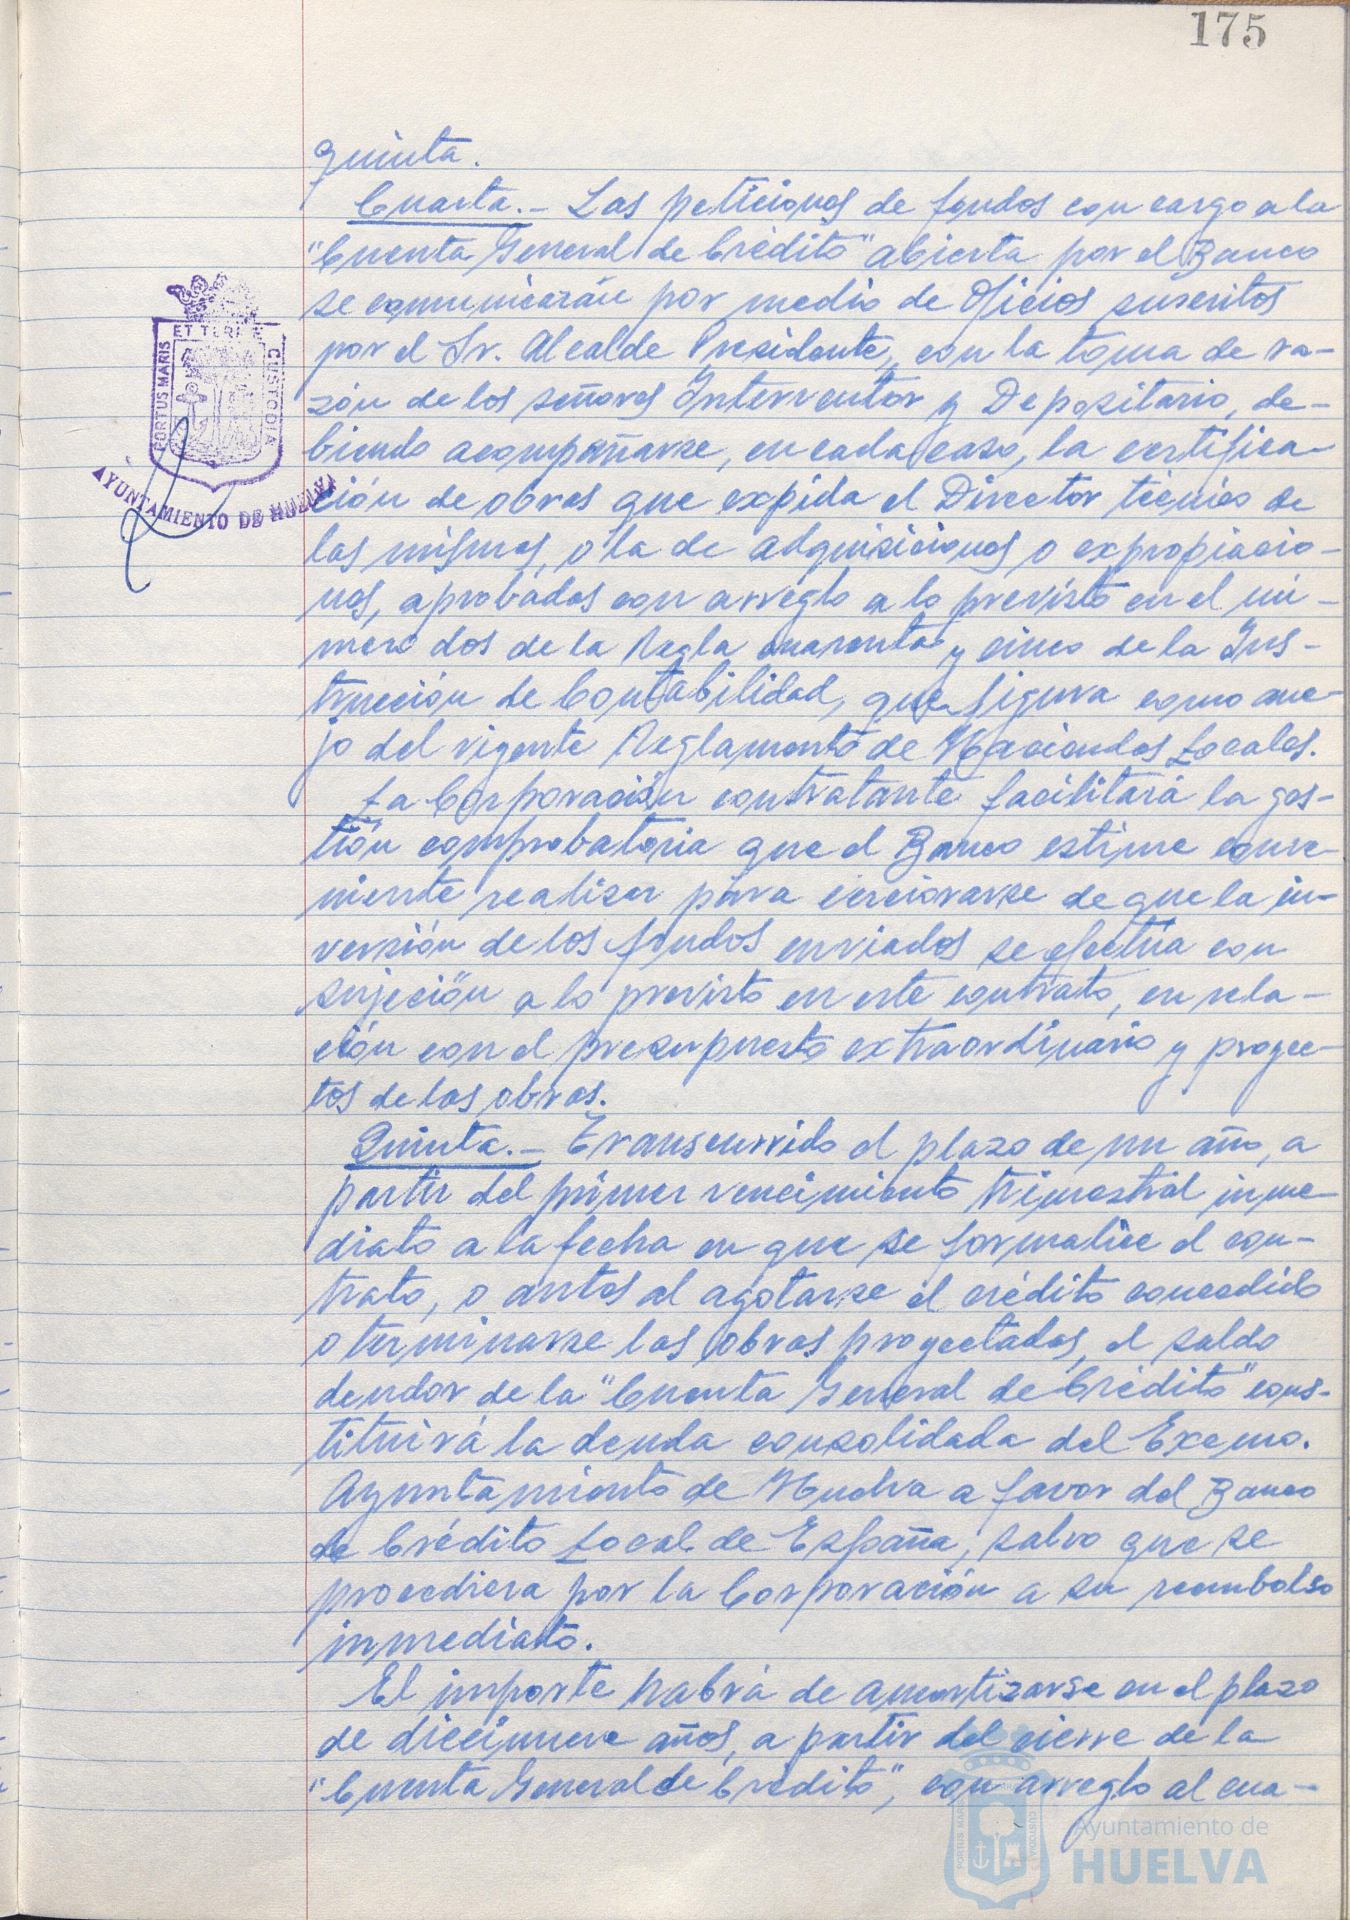 175
quinta.
Cuarta.- Las peticiones de fondos con cargo a la
"Cuenta General de Crédito" abierta por el Banco
se comunicarán por medio de Oficios suscritos
por el Sr. Alcalde Presidente, con la toma de ra-
zón de los señores Interventor y Depositario, de-
biendo acompañarse, en cada caso, la certifica-
ción de obras que expida el Director técnico de
las mismas, o la de adquisiciones o expropiacio-
nes, aprobadas con arreglo a lo previsto en el nú-
mero dos de la Regla cuarenta y cinco de la Ins-
trucción de Contabilidad, que figura como ane-
jo del vigente Reglamento de Haciendas Locales.
La Corporación contratante facilitará la ges-
tión comprobatoria que el Banco estime conve-
niente realizar para cerciorarse de que la in-
versión de los fondos enviados se efectúa con
sujeción a lo previsto en este contrato, en rela-
ción con el presupuesto extraordinario y proyec-
tos de las obras.
Quinta.- Transcurrido el plazo de un año, a
partir del primer vencimiento trimestral inme-
diato a la fecha en que se formalice el con-
trato, o antes al agotarse el crédito concedido
o terminarse las obras proyectadas, el saldo
deudor de la "Cuenta General de Crédito" cons-
tituirá la deuda consolidada del Excmo.
Ayuntamiento de Huelva a favor del Banco
de Crédito Local de España, salvo que se
procediera por la Corporación a su reembolso
inmediato.
El importe habrá de amortizarse en el plazo
de diecinueve años, a partir del cierre de la
"Cuenta General de Crédito", con arreglo al cua-
PORTUS MARIS
ET TERRE
CUSTODIA
AYUNTAMIENTO DE HUELVA
PORTUS MARIS
CUSTODIA
Ayuntamiento de
HUELVA